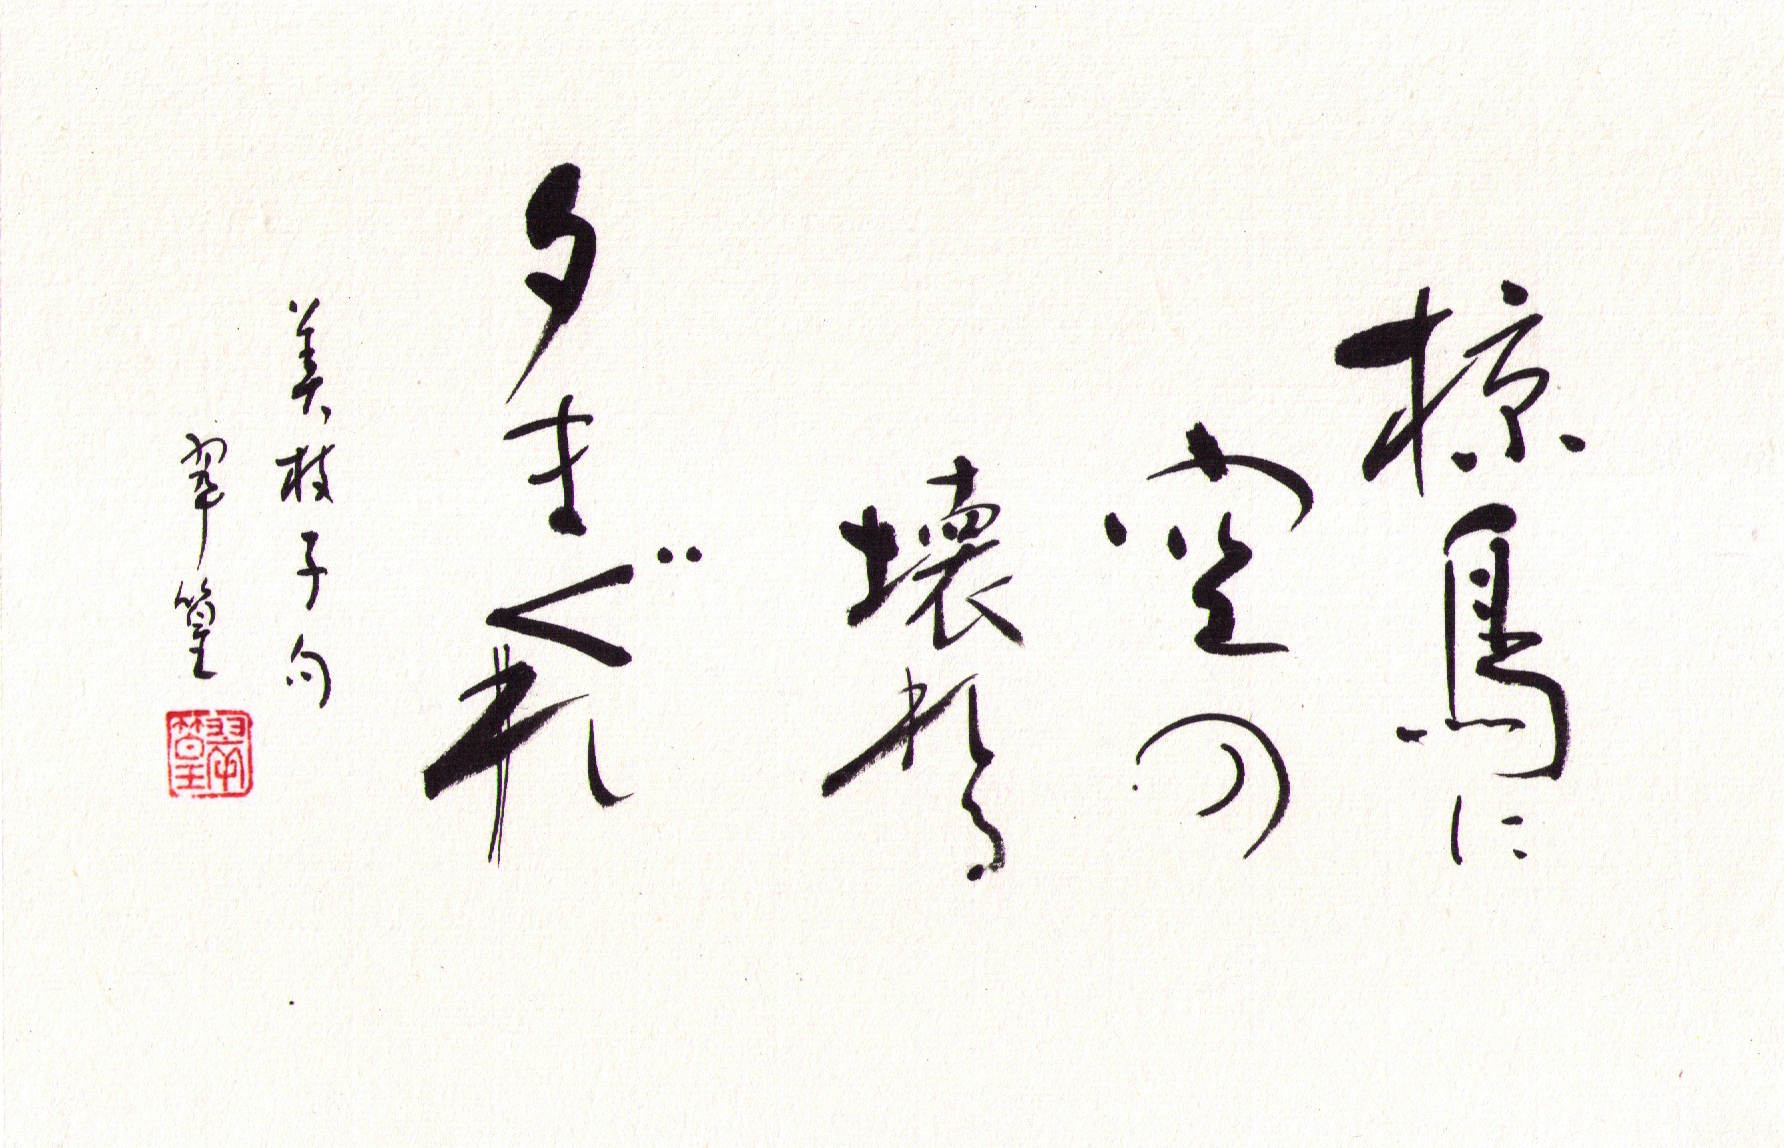 椋鳥に
空の
壊れる
夕まぐれ
美枝子句
翠篁
翠篁